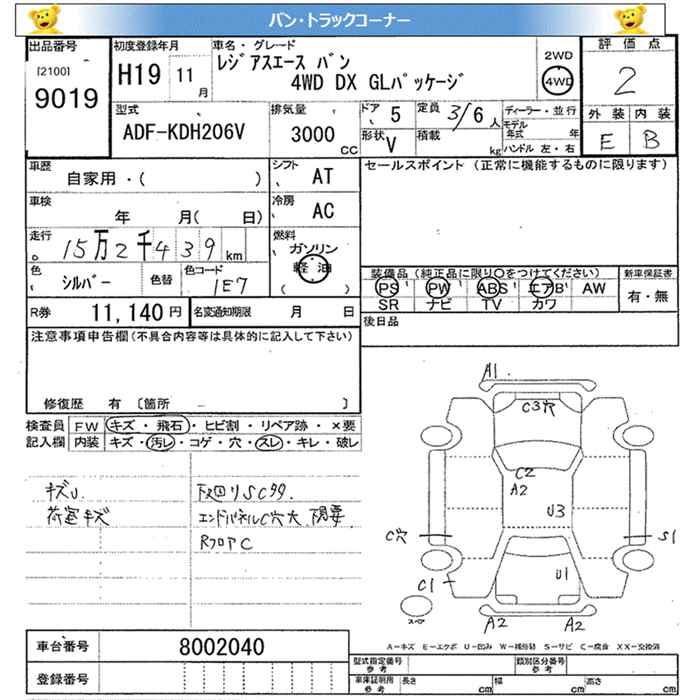 バン・トラックコーナー
出品番号
[2100]
9019
初度登録年月
H19 11 月
車名・グレード
レジアスエース バン
4WD DX GLパッケージ
2WD
4WD
評価点
2
外装 内装
E B
型式
ADF-KDH206V
排気量
3000 CC
ドア 5
形状 V
定員 3/6 人
積載 kg
ディーラー・並行
モデル年式 年
ハンドル 左・右
車歴
自家用・( )
シフト AT
車検
年 月( 日)
冷房 AC
走行
15万2千439 km
燃料
ガソリン
軽油
色 シルバー
色替
色コード 1E7
R券 11,140 円
名変通知期限 月 日
セールスポイント (正常に機能するものに限ります)
装備品 (純正品に限り○をつけてください)
新車保証書
PS PW ABS エアB AW
SR ナビ TV カワ
有・無
後日品
注意事項申告欄(不具合内容等は具体的に記入して下さい)
修復歴 有 〔箇所 〕
検査員
記入欄
FW キズ・飛石・ヒビ割・リペア跡・×要
内装 キズ・汚レ・コゲ・穴・スレ・キレ・破レ
キズU.
荷室キズ
下廻リSC99.
エンドパネルC穴大 腐要
RフロアC
A1
C3穴
C2
A2
U3
C穴
S1
C1
U1
A2 A2
スペア
A-キズ E-エクボ U-凹み W-補修跡 S-サビ C-腐食 XX-交換済
車台番号 8002040
登録番号
型式指定番号
参考
類別区分番号
参考
車庫証明用
参考
長さ cm 幅 cm 高さ cm